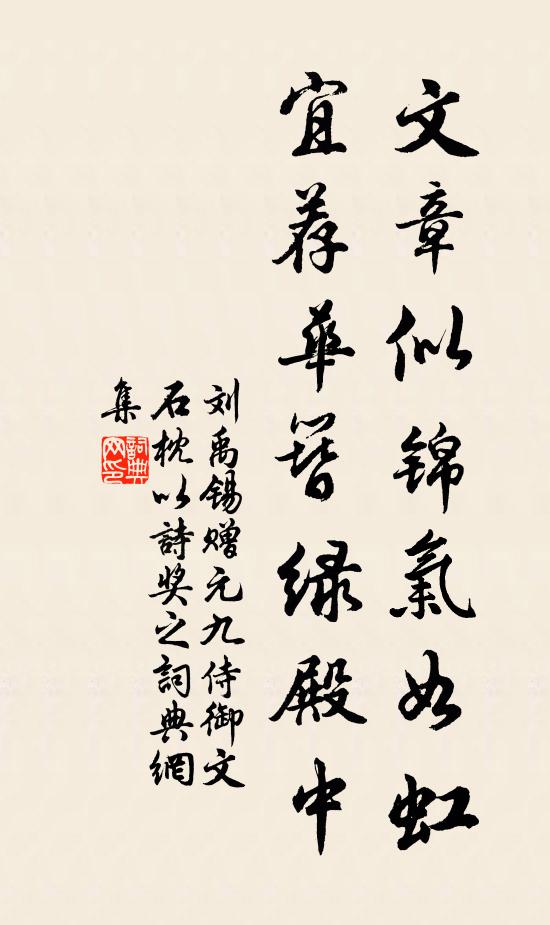 文章似锦氣如虹
宜荐華簪绿殿中
刘禹锡赠元九侍御文
石枕以詩奖之詞典網
集
詞典
网印